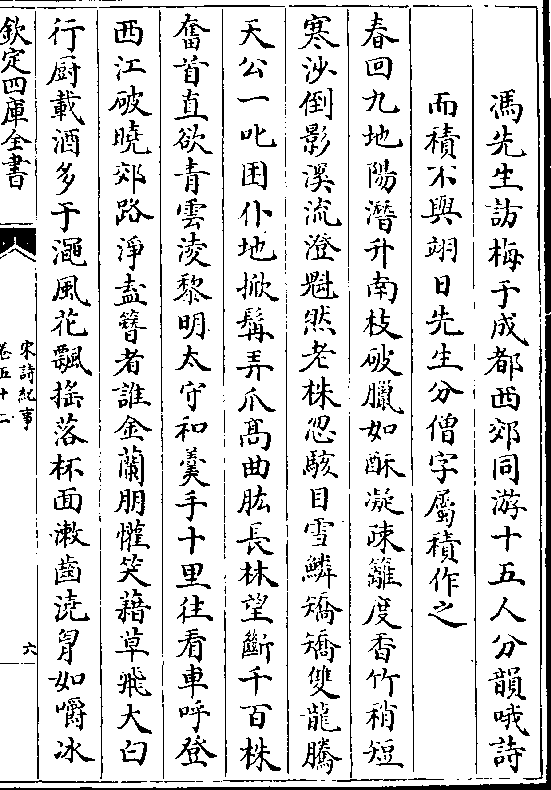 馮先生訪梅于成都西郊同游十五人分韻哦詩
而積不與翊日先生分僧字屬積作之
春回九地陽潛升南枝破臘如酥凝疎籬度香竹稍短
寒沙倒影溪流澄魁然老株忽駭目雪鱗矯矯雙龍騰
天公一叱困仆地掀髯弄爪髙曲肱長林望斷千百株
奮首直欲青雲淩黎明太守和羮手十里往看車呼登
西江破曉郊路淨盍簪者誰金蘭朋懽笑藉草飛大白
行厨載酒多于澠風花飄摇落杯面漱齒澆胷如嚼冰
欽定四庫全書
宋詩紀事
卷五十二
六